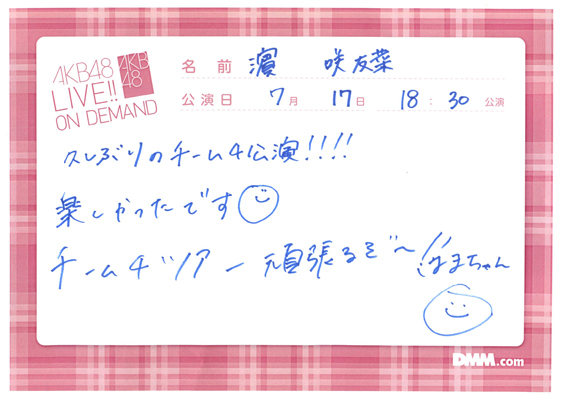 AKB48
LIVE!!
ON DEMAND
AKB
48
名前 濵 咲友菜
公演日 7月 17日 18:30 公演
久しぶりのチーム4公演!!!!
楽しかったです
チーム4ツアー頑張るぞ〜!! はまちゃん
DMM.com